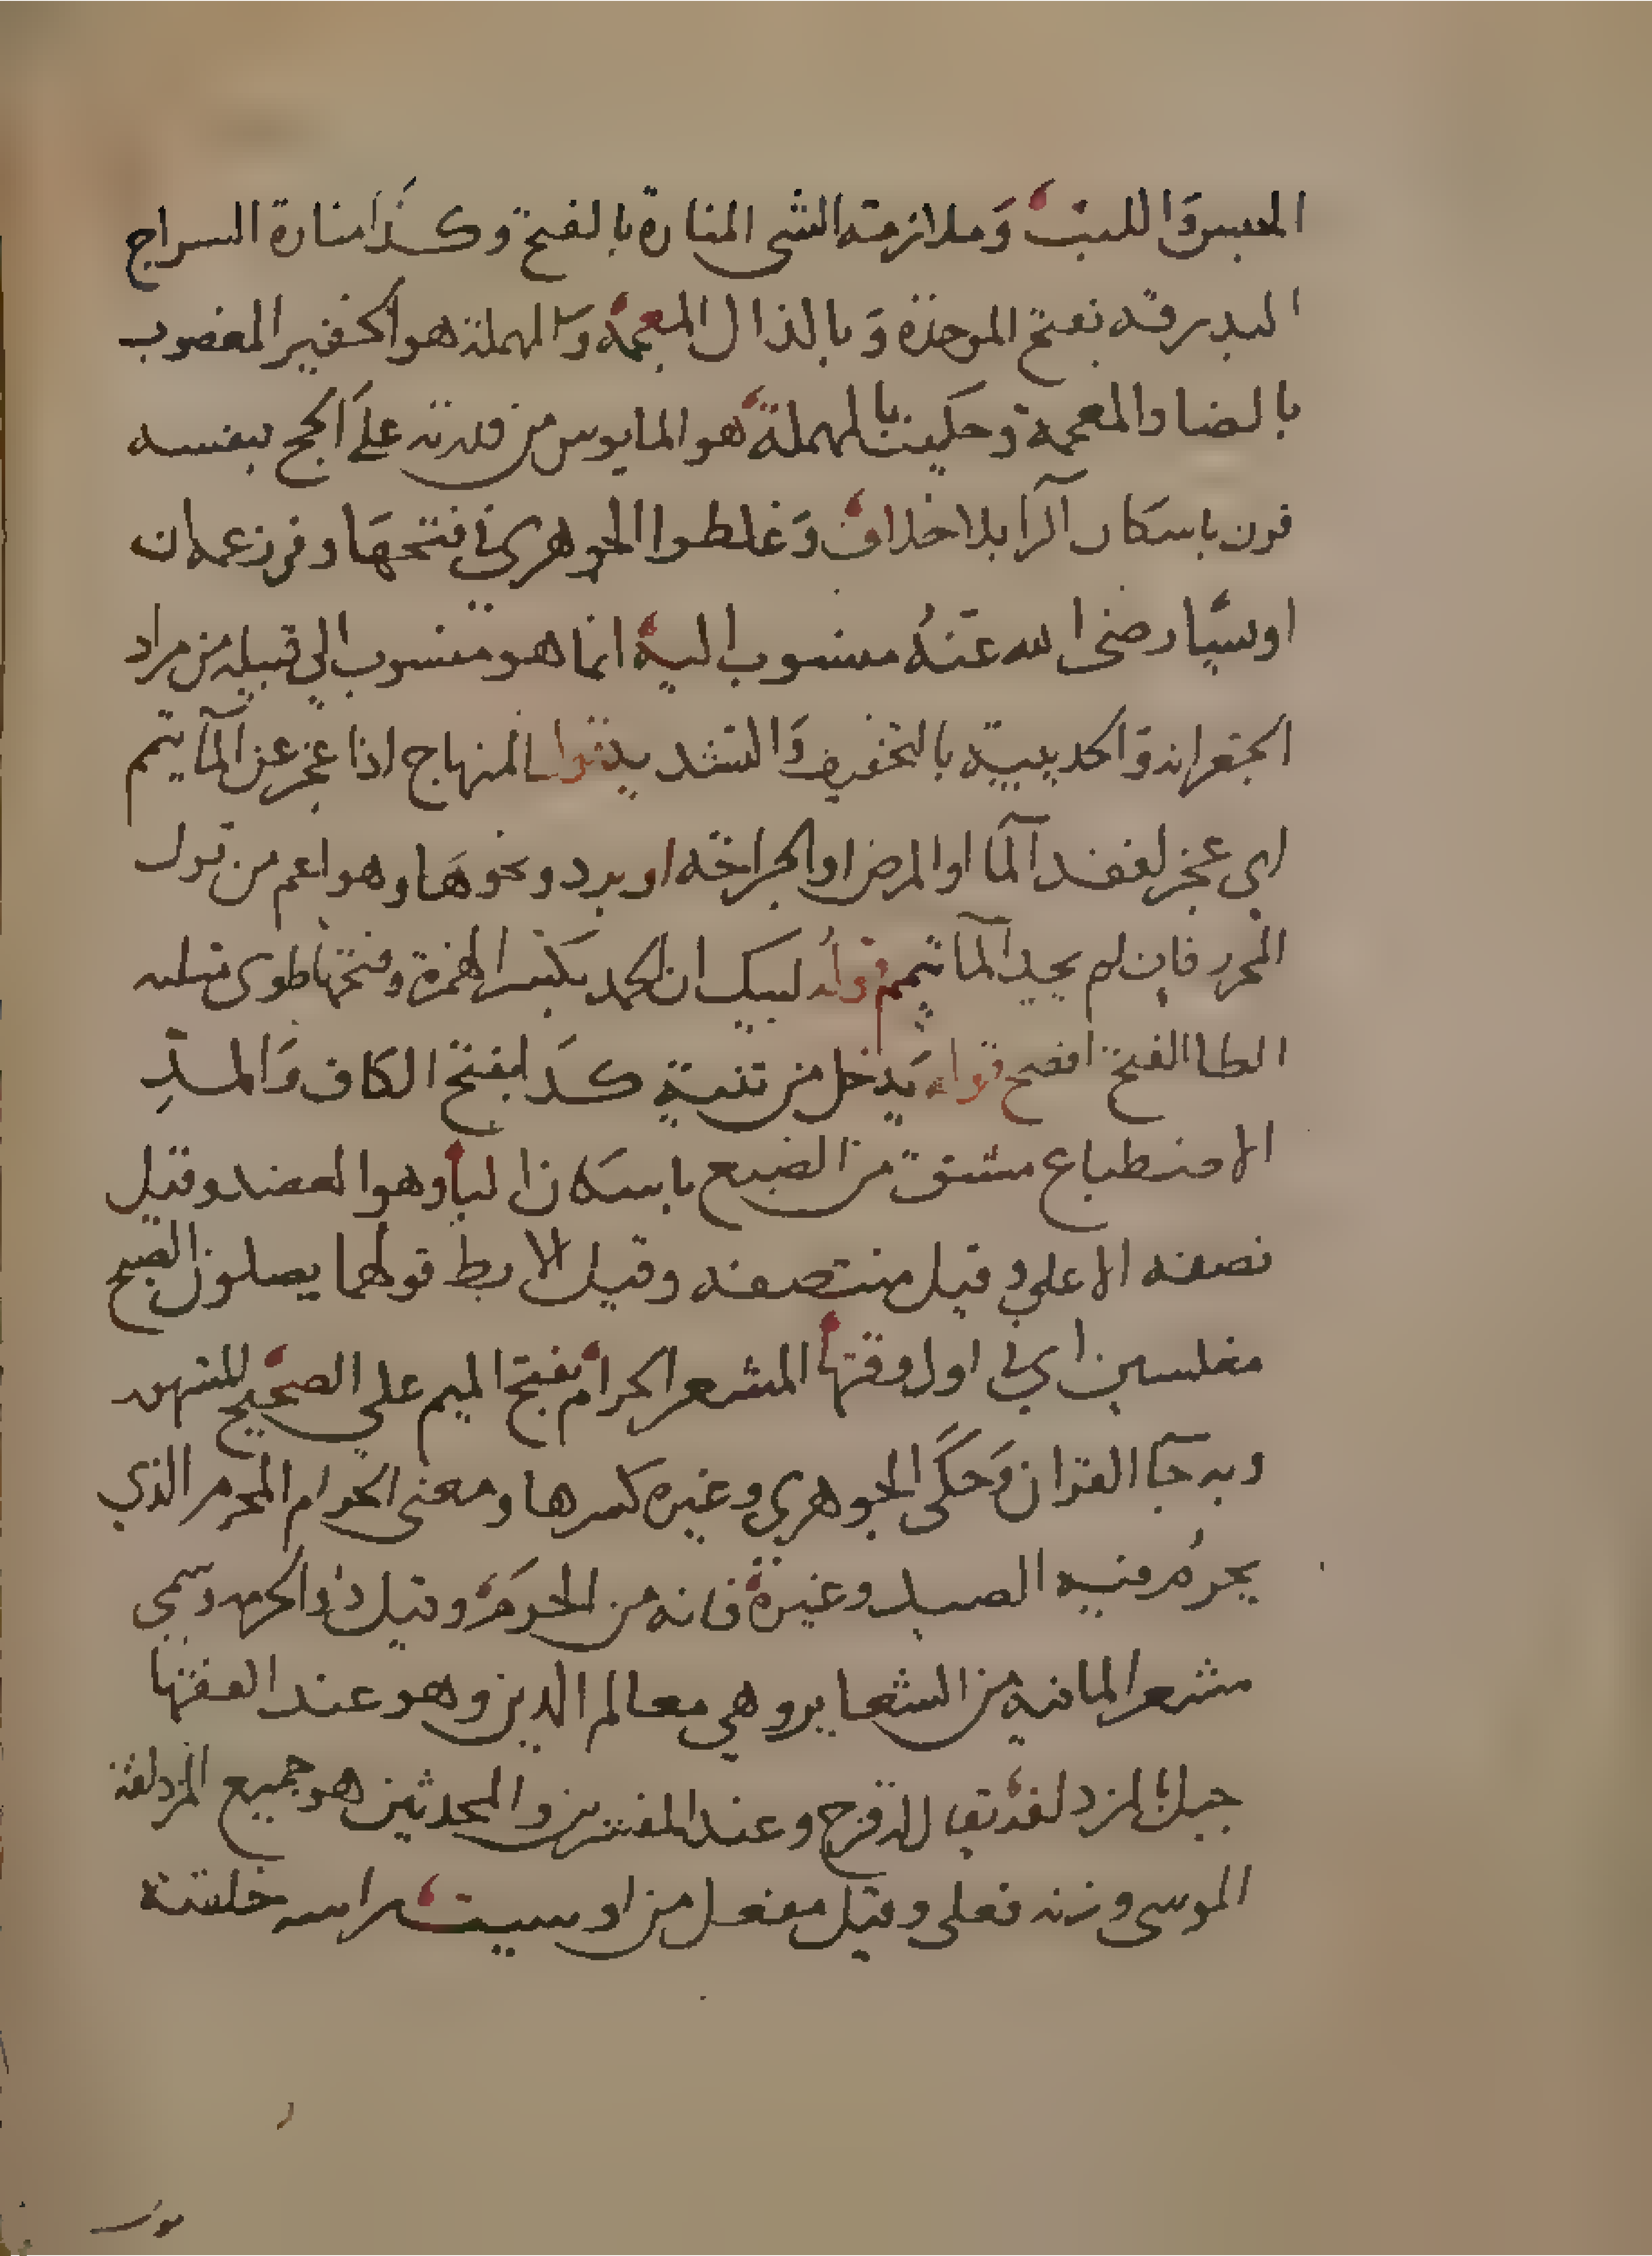 الحبس وَاللبث وَملازمة الشى المنارة بالفتح وكذا منارة السراج
البدرقه بفتح الموحدة وَ بالذال المعجمة وَالمهملة هو الخفير المعضوب
بالضاد المعجمة وحكيت بالمهملة هو المايوس من قدرته علىَ الحج بنفسه
قرن باسكان الرا بلا خلاف وَغلطوا الجوهري في فتحهَا وفي زعمه ان
اويسًا رضى الله عنهُ منسوب اليه انما هو منسوب الى قبيله من مراد
الجعرانة والحديبية بالتخفيف وَالتشديد قول المنهاج اذا عجز عن المآ يتمم
اي عجز لفقد المآ او المرض او الجراحه او برد ونحوهَا وهو اعم من قول
المحرر فان لم يجد المآ تيمم قوله لبيك ان الحمد بكسر الهمزة وفتحها طوى مثلثه
الطا الفتح افصح قوله يَدخل من ثنية كدَا بفتح الكاف وَالمدِّ
الاضطباع مشتق من الضبع باسكان البا وهو العضد وقيل
نصفه الاعلي وقيل منتصفه وقيل الابط قولهما يصلون الصبح
مغلسين اي في اول وقتها المشعر الحرام بفتح الميم علي الصحيح المشهور
وبه جآ القران وَحكَى الجوهري وغيره كسرها ومعنى الحرام المحرم الذي
يحرُم فيه الصيد وغيرة فانه من الحرَم وقيل ذو الحرمه وسمى
مشعر الما فيه من الشعاير وهي معالم الدين وهو عند الفقها
جبل بالمزدلفة يقال له قزح وعند المفسرين والمحدثين هو جميع المزدلفة
الموسى وزنه فعلى وقيل مفعل من اوسيت راسه حلقته